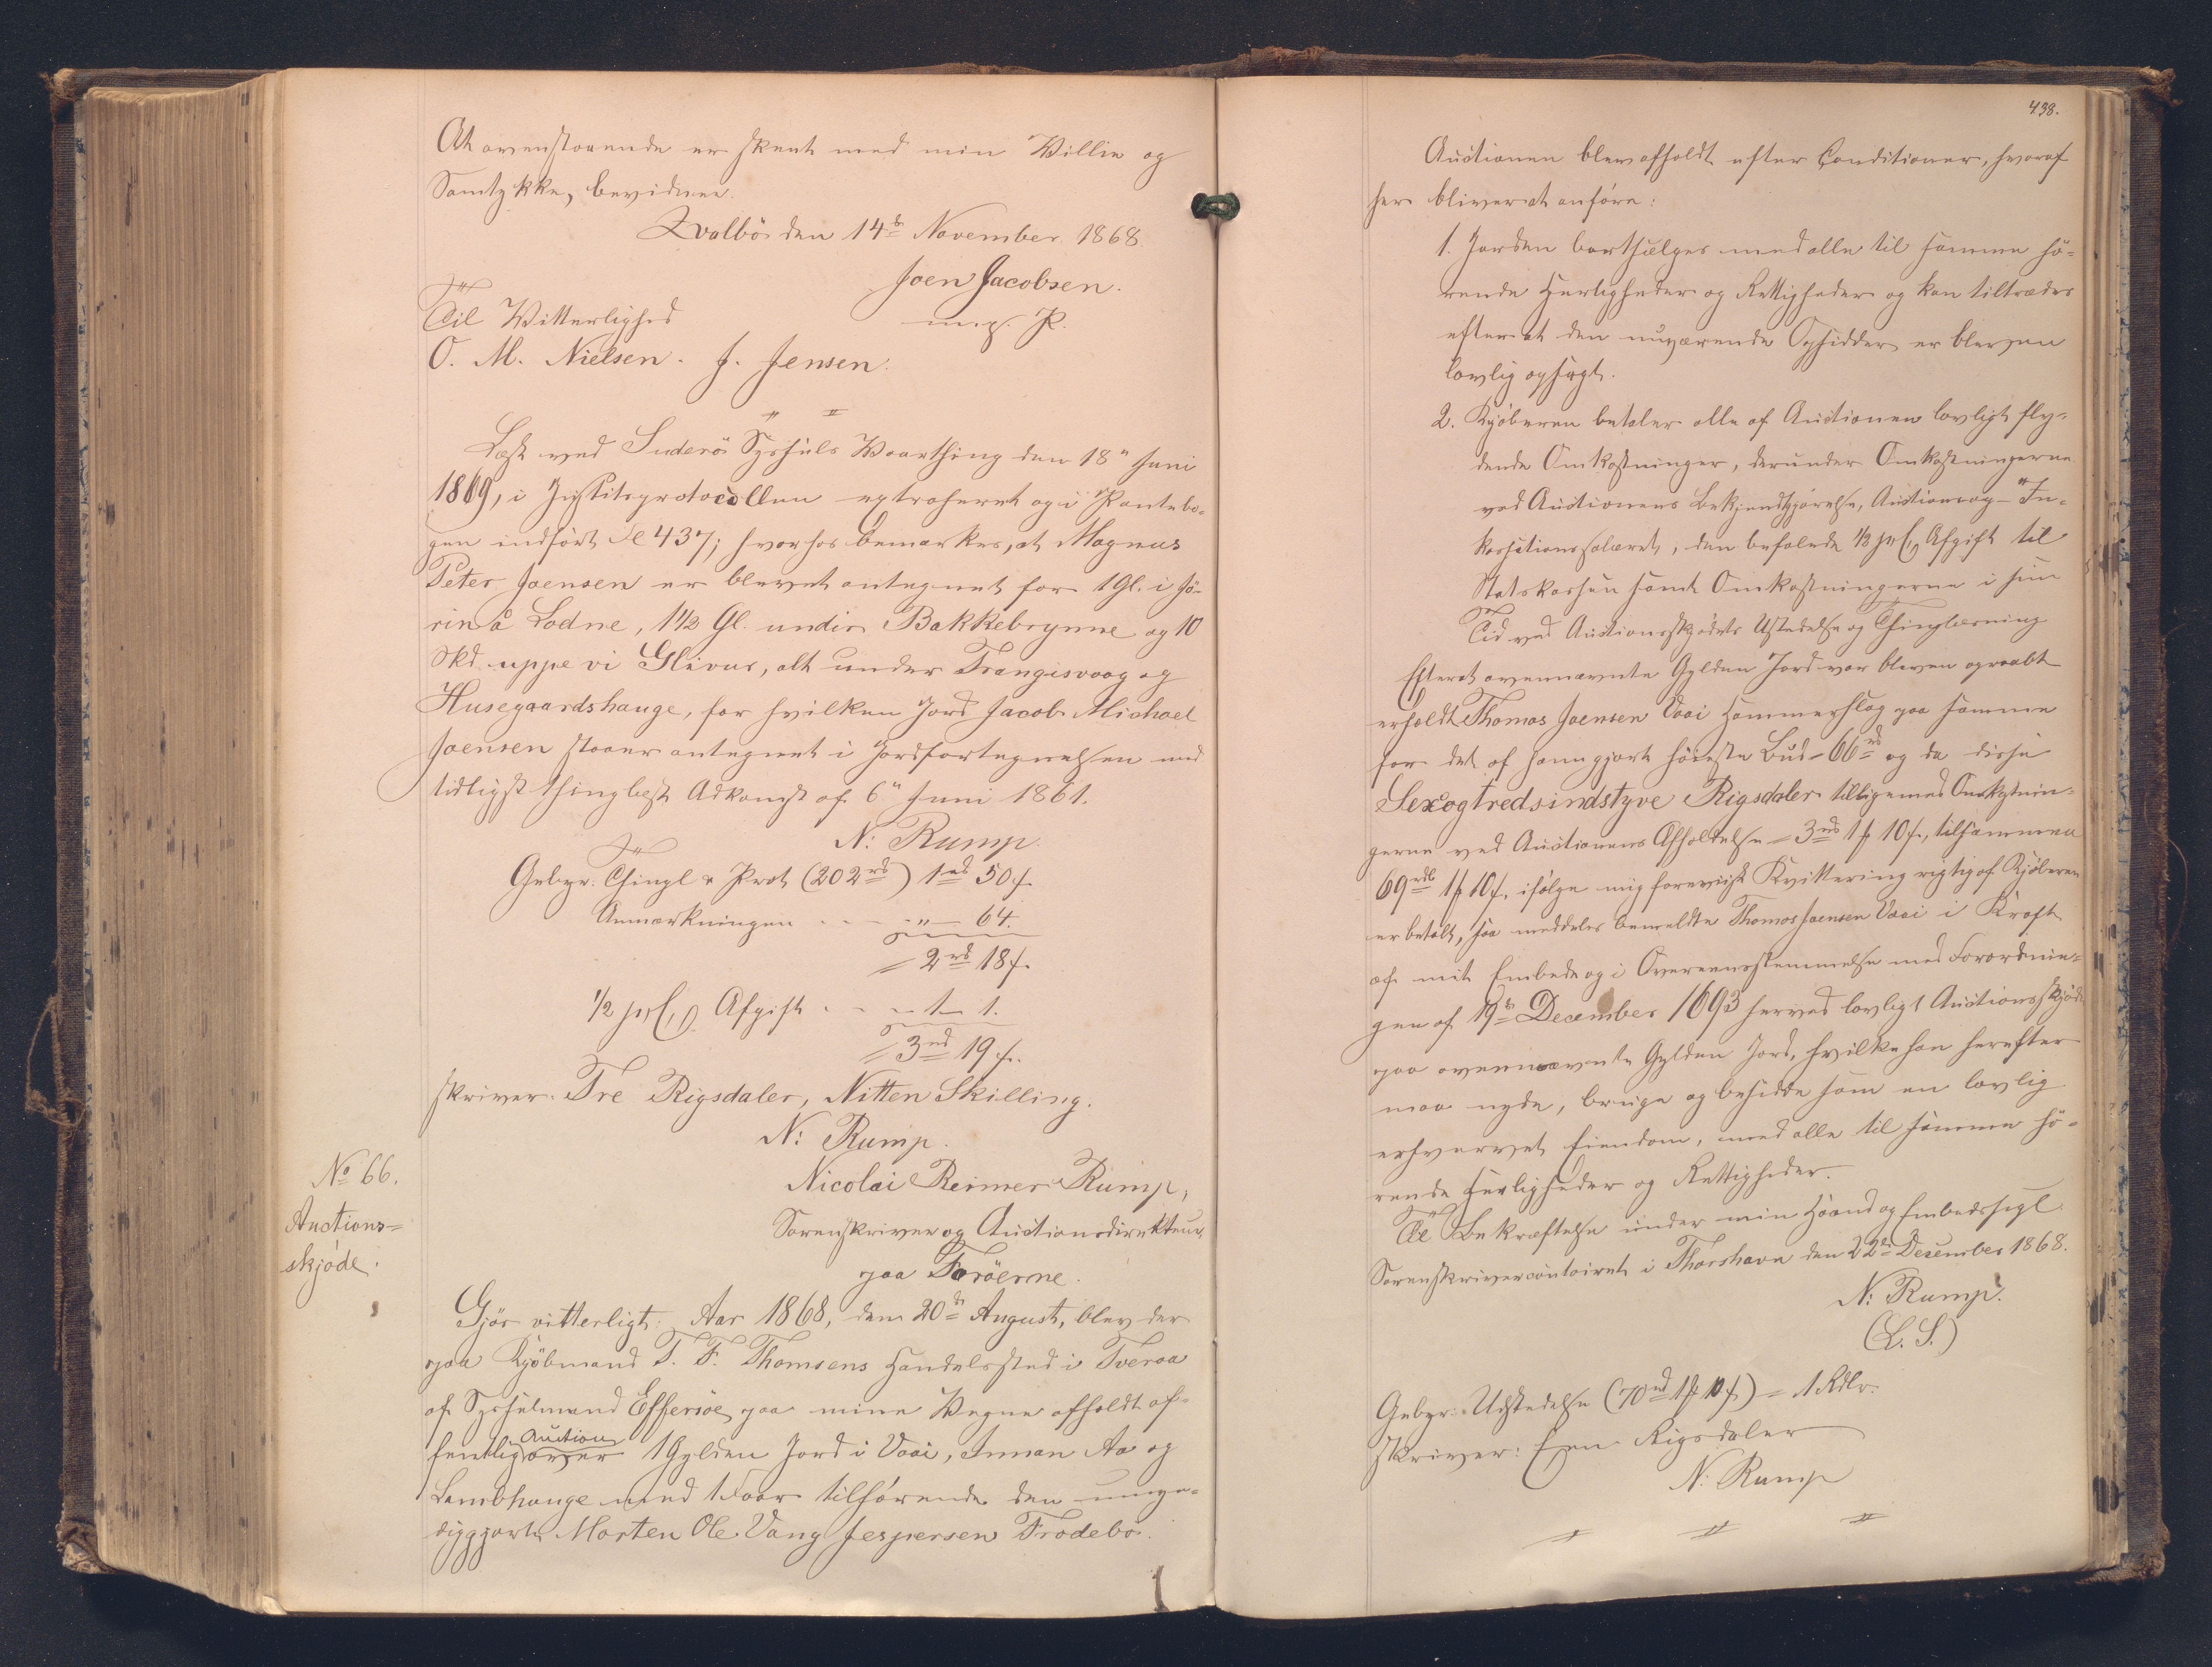 At ovenstaaende er skeet med min Villie og
Samtykke, bevidnes.
Qvalbö den 14de November 1868
Joen Jacobsen.
m. p. P.
Til Vitterlighed
O. M. Nielsen. J. Jensen.
Læst ved Suderö Syssels Vaarthing den 18" Juni
1869, i Justitsprotocollen extraheret og i Pantebo-
gen indført Fol 437; hvorhos bemærkes, at Magnus
Peter Joensen er blevet antegnet for 1 Gl. i Hö-
rin á Lodne, 1 1/2 Gl. undir Bakkebrynne og 10
Skd uppe vi Glivur, alt under Trangisvaag og
Husegaardshauge, for hvilken Jord Jacob Michael
Joensen staaer antegnet i Jordfortegnelsen med
tidligst thinglæst Adkomst af 6" Juni 1861.
N: Rump.
Gebyr. Thingl & Prot (202 rd) 1 rd 50 s.
Anmærkningen - - - " 64.
= 2 rd 18 s.
1/2 prCt. Afgift - - - 1 - 1.
= 3 rd 19 s.
skriver Tre Rigsdaler, Nitten Skilling.
N: Rump.
No 66.
Auctions-
skjøde.
Nicolai Reimer Rump,
Sorenskriver og Auctionsdirekteur
paa Færöerne.
Gjör vitterligt: Aar 1868, den 20de August, blev der
paa Kjöbmand T. F. Thomsens Handelssted i Tveraa
af Sysselmand Effersøe paa mine Vegne afholdt of-
fentlig Auction over 1 Gylden Jord i Vaai, Innan Aa og
Lambhauge med 1 Faar tilhørende den umyn-
diggjorte Morten Ole Vang Jespersen Frodebö.
438.
Auctionen blev afholdt efter Conditioner, hvoraf
her bliver at anföre:
1. Jorden bortsælges med alle til samme hö-
rende Herligheder og Rettigheder og kan tiltrædes
efterat den nuværende Opsidder er bleven
lovlig opsagt.
2. Kjöberen betaler alle af Auctionen lovligt fly-
dende Omkostninger, derunder Omkostningerne
ved Auctionens Bekjendtgjørelse, Auctions og In-
kassationssalairet, den befalede 1/2 prCt. Afgift til
Statskassen samt Omkostningerne i sin
Tid ved Auctionsskjødets Udstedelse og Thinglæsning
Efterat ovennævnte Gylden Jord var bleven opraabt
erholdt Thomas Joensen Vaai Hammerslag paa samme
for det af ham gjorte höieste Bud - 66 rd og da disse
Sexogtredsindstyve Rigsdaler tilligemed Omkostnin-
gerne ved Auctionens Afholdelse = 3 rd 1 # 10 s., tilsammen
69 rdl 1 # 10 s. ifølge mig foreviist Kvittering rigtig af Kjöberen
er betalt, saa meddeles bemeldte Thomas Joensen Vaai i Kraft
af mit Embede og i Overeensstemmelse med Forordnin-
gen af 19de December 1693 herved lovligt Auctionsskjøde
paa ovennævnte Gylden Jord, hvilke han herefter
maa nyde, bruge og besidde som en lovlig
erhvervet Eiendom, med alle til samme hö-
rende Herligheder og Rettigheder.
Til Bekræftelse under min Haand og Embedssegl.
Sorenskrivercontoiret i Thorshavn den 22de December 1868.
N: Rump.
(L. S.)
Gebyr: Udstedelse (70 rd 1 # 10 s) = 1 Rdlr.
skriver: Een Rigsdaler
N: Rump